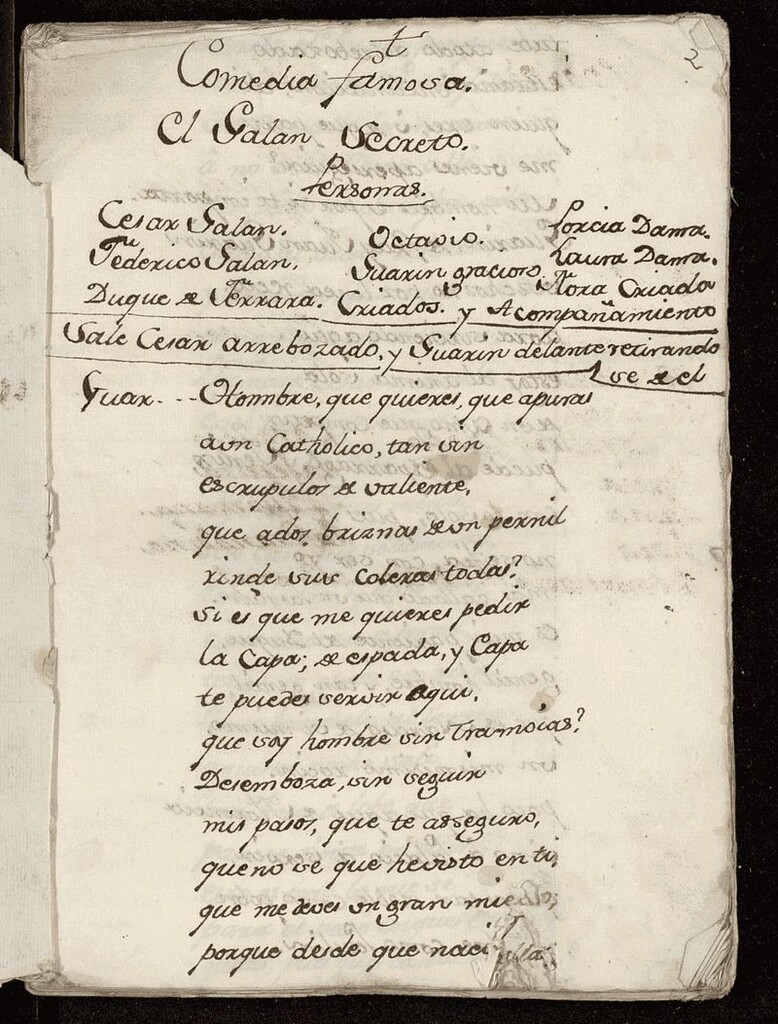 2
Comedia famosa.
El Galan Secreto.
Personas.
Cesar Galan. Octavio. Porcia Dama.
Federico Galan. Guarin gracioso. Laura Dama.
Duque de Ferrara. Criados. y Acompañamiento Flora Criada
Sale Cesar arrebozado, y Guarin delante retirando
se de el
Guar. - - - Hombre, que quieres, que apuras
aun Catholico, tan sin
escrupulos de valiente,
que ados briznas de un pernil
rinde sus coleras todas?
si es que me quieres pedir
la Capa; de espada, y Capa
te puedes servir aqui,
que soy hombre sin Tramoias?
Desemboza, sin seguir
mis pasos, que te asseguro,
que no se que hevisto en ti,
que me deves un gran miedo,
porque desde que naci